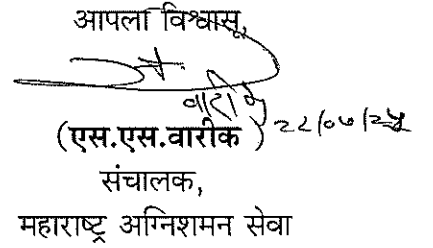 आपला विश्वासू,
(एस.एस.वारीक )
संचालक,
महाराष्ट्र अग्निशमन सेवा